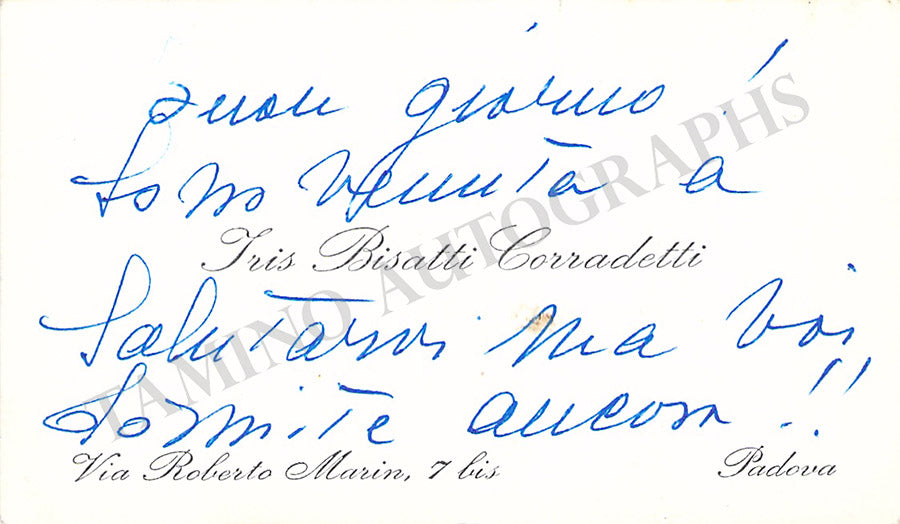 Buon giorno!
Sono venuta a
Iris Bisatti Corradetti
Salutarvi ma voi
dormite ancora!!
Via Roberto Marin, 7 bis Padova
TAMINO AUTOGRAPHS